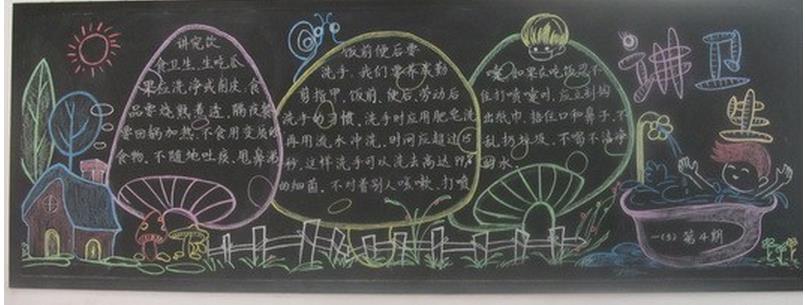 讲究饮
食卫生,生吃瓜
果应洗净或削皮,食
品要烧熟煮透,隔夜菜
要回锅加热,不食用变质的
食物,不随地吐痰,甩鼻涕
饭前便后要
洗手,我们要养成勤
剪指甲,饭前、便后、劳动后
洗手的习惯,洗手时应用肥皂洗
再用流水冲洗,时间应超过15
秒,这样洗手可以洗去高达99%
的细菌,不对着别人咳嗽、打喷
嚏,如果在吃饭忍不
住打喷嚏时,应立刻掏
出纸巾,捂住口和鼻子,不
乱扔垃圾,不喝不洁净
的水
讲卫
生
一(3) 第4期